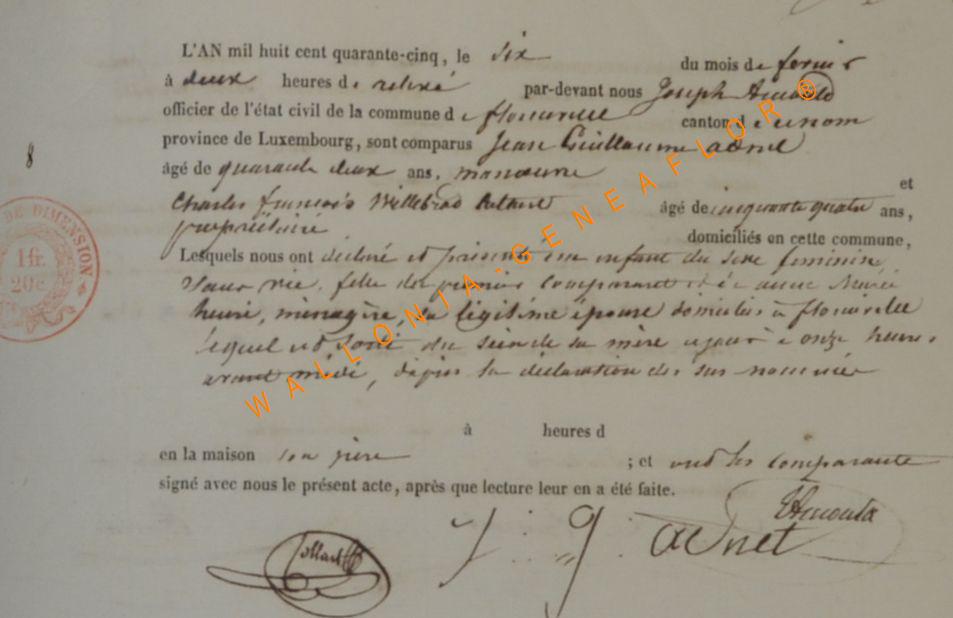 L'AN mil huit cent quarante-cinq, le six du mois de fevrier
à deux heures de relevé par-devant nous Joseph
officier de l'état civil de la commune de florenville canton d
province de Luxembourg, sont comparus Jean Guillaume adnet
âgé de quarante deux ans, manœuvre et
Charles françois Willebrod Collard âgé de cinquante quatre ans,
propriétaire domiciliés en cette commune,
Lesquels nous ont déclaré et présenté un enfant du sexe feminin
sans vie, fille du premier comparant et de anne Marie
henri, ménagère, sa légitime épouse domiciliés à florenville
lequel est sorti du sein de sa mère à onze heures
avant midi, d'après la déclaration des sus nommés
à heures d
en la maison son père ; et ont les comparants
signé avec nous le présent acte, après que lecture leur en a été faite.
Collard adnet
8
DE DIMENSION
1 fr.
20 c.
WALLONIA-GENEAFLOR ®